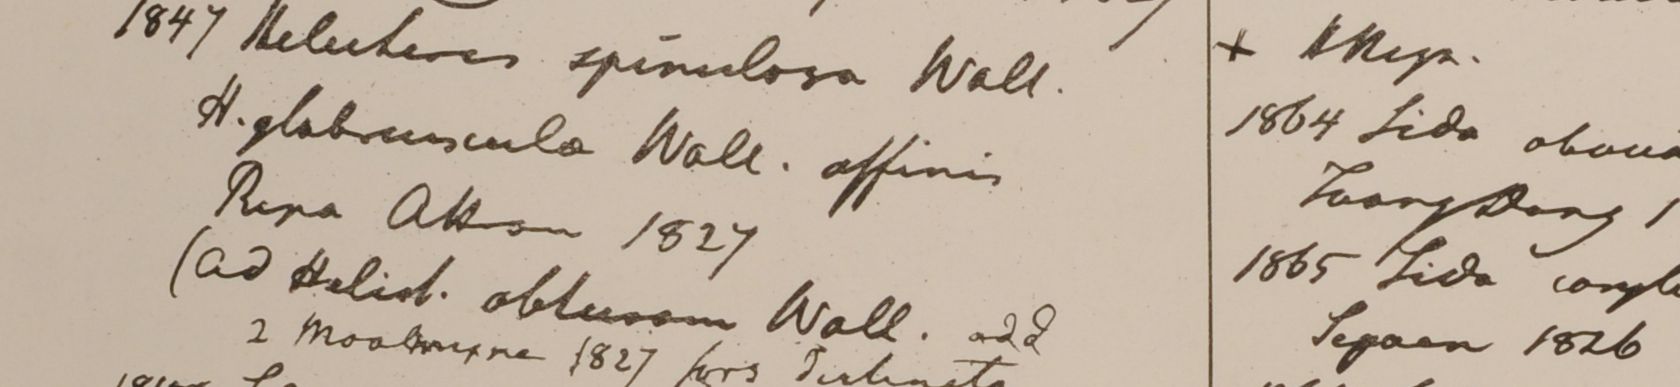 1847 Helicteres spinulosa Wall.
H. glabriuscula Wall. affinis
Ripa Attran 1827
(ad Helict. obtusam Wall. add
2 Moalmyne 1827 fors distincta
+ H Ryn.
1864 Sida obova
Taong Dong 1
1865 Sida comple
Segaen 1826